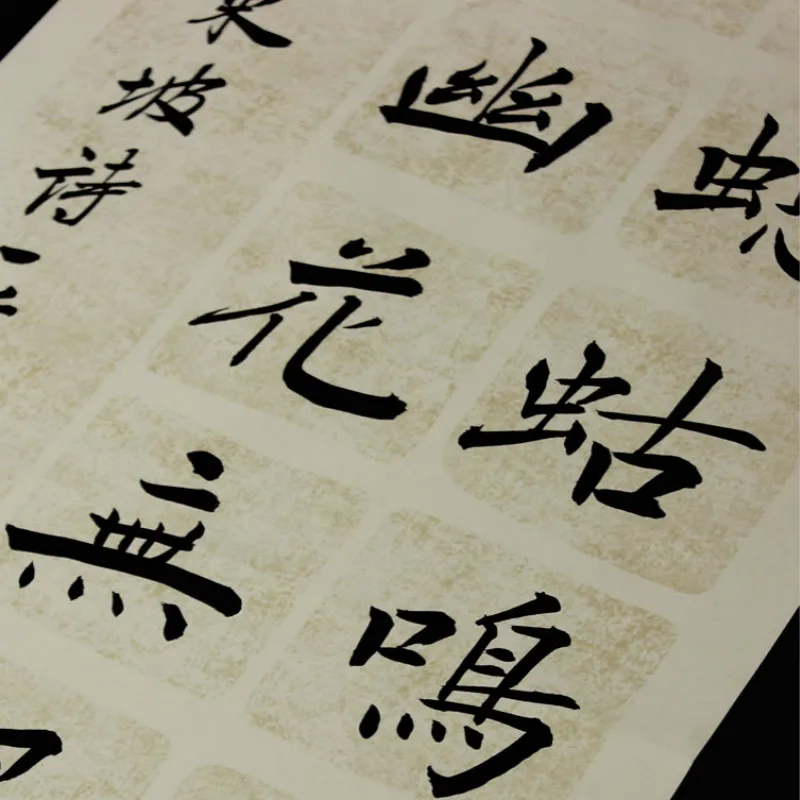 蛄鳴
幽花無
東坡詩